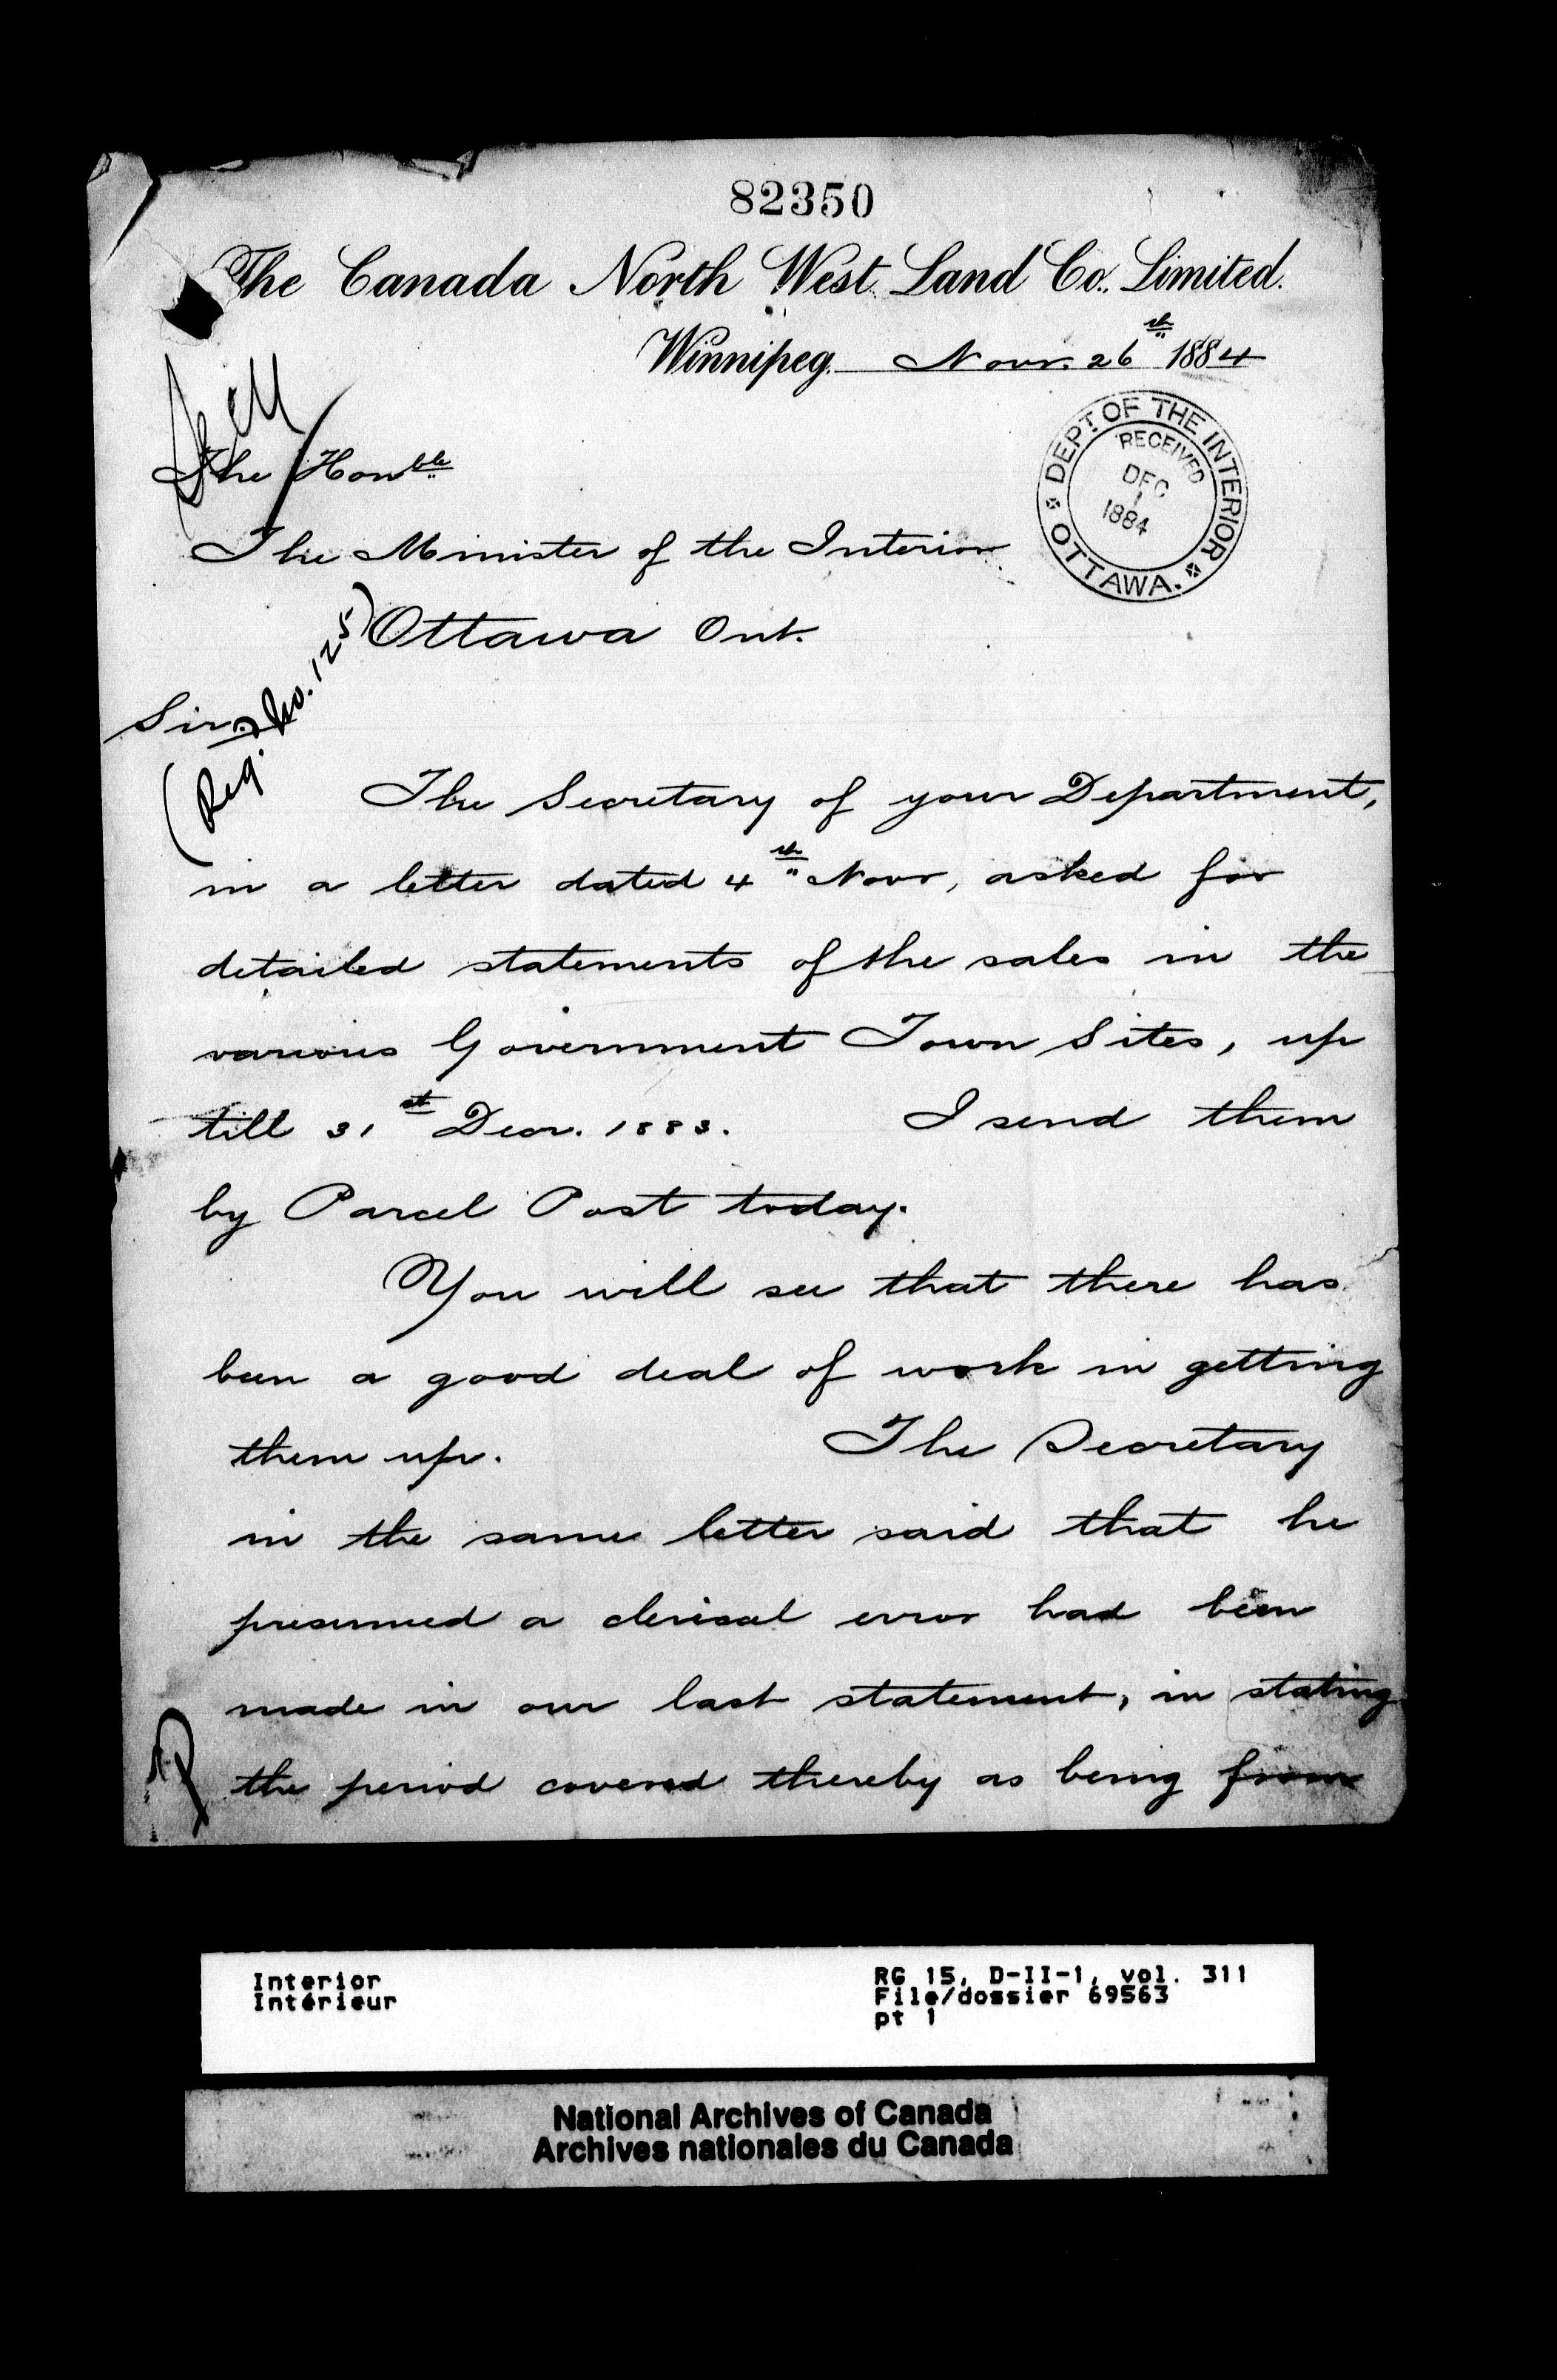 82350
The Canada North West Land Co. Limited.
Winnipeg. Novr. 26th 1884
DEPT OF THE INTERIOR
RECEIVED
DEC
1
1884
OTTAWA.
The Honble
The Minister of the Interior
Ottawa Ont.
(Reg. No. 125)
Sir,
The Secretary of your Department,
in a letter dated 4th Novr, asked for
detailed statements of the sales in the
various Government Town Sites, up
till 31st Decr. 1883. I send them
by Parcel Post today.
You will see that there has
been a good deal of work in getting
them up. The Secretary
in the same letter said that he
presumed a clerical error had been
made in our last statement, in stating
the period covered thereby as being from
Interior
Intérieur
RG 15, D-II-1, vol. 311
File/dossier 69563
pt 1
National Archives of Canada
Archives nationales du Canada